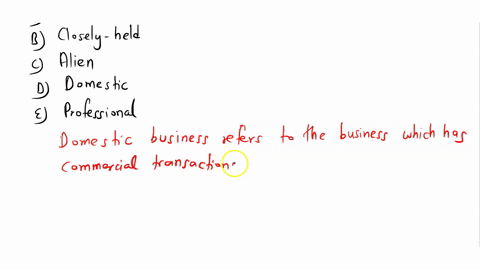 B) Closely-held
C) Alien
D) Domestic
E) Professional
Domestic business refers to the business which has
commercial transaction.